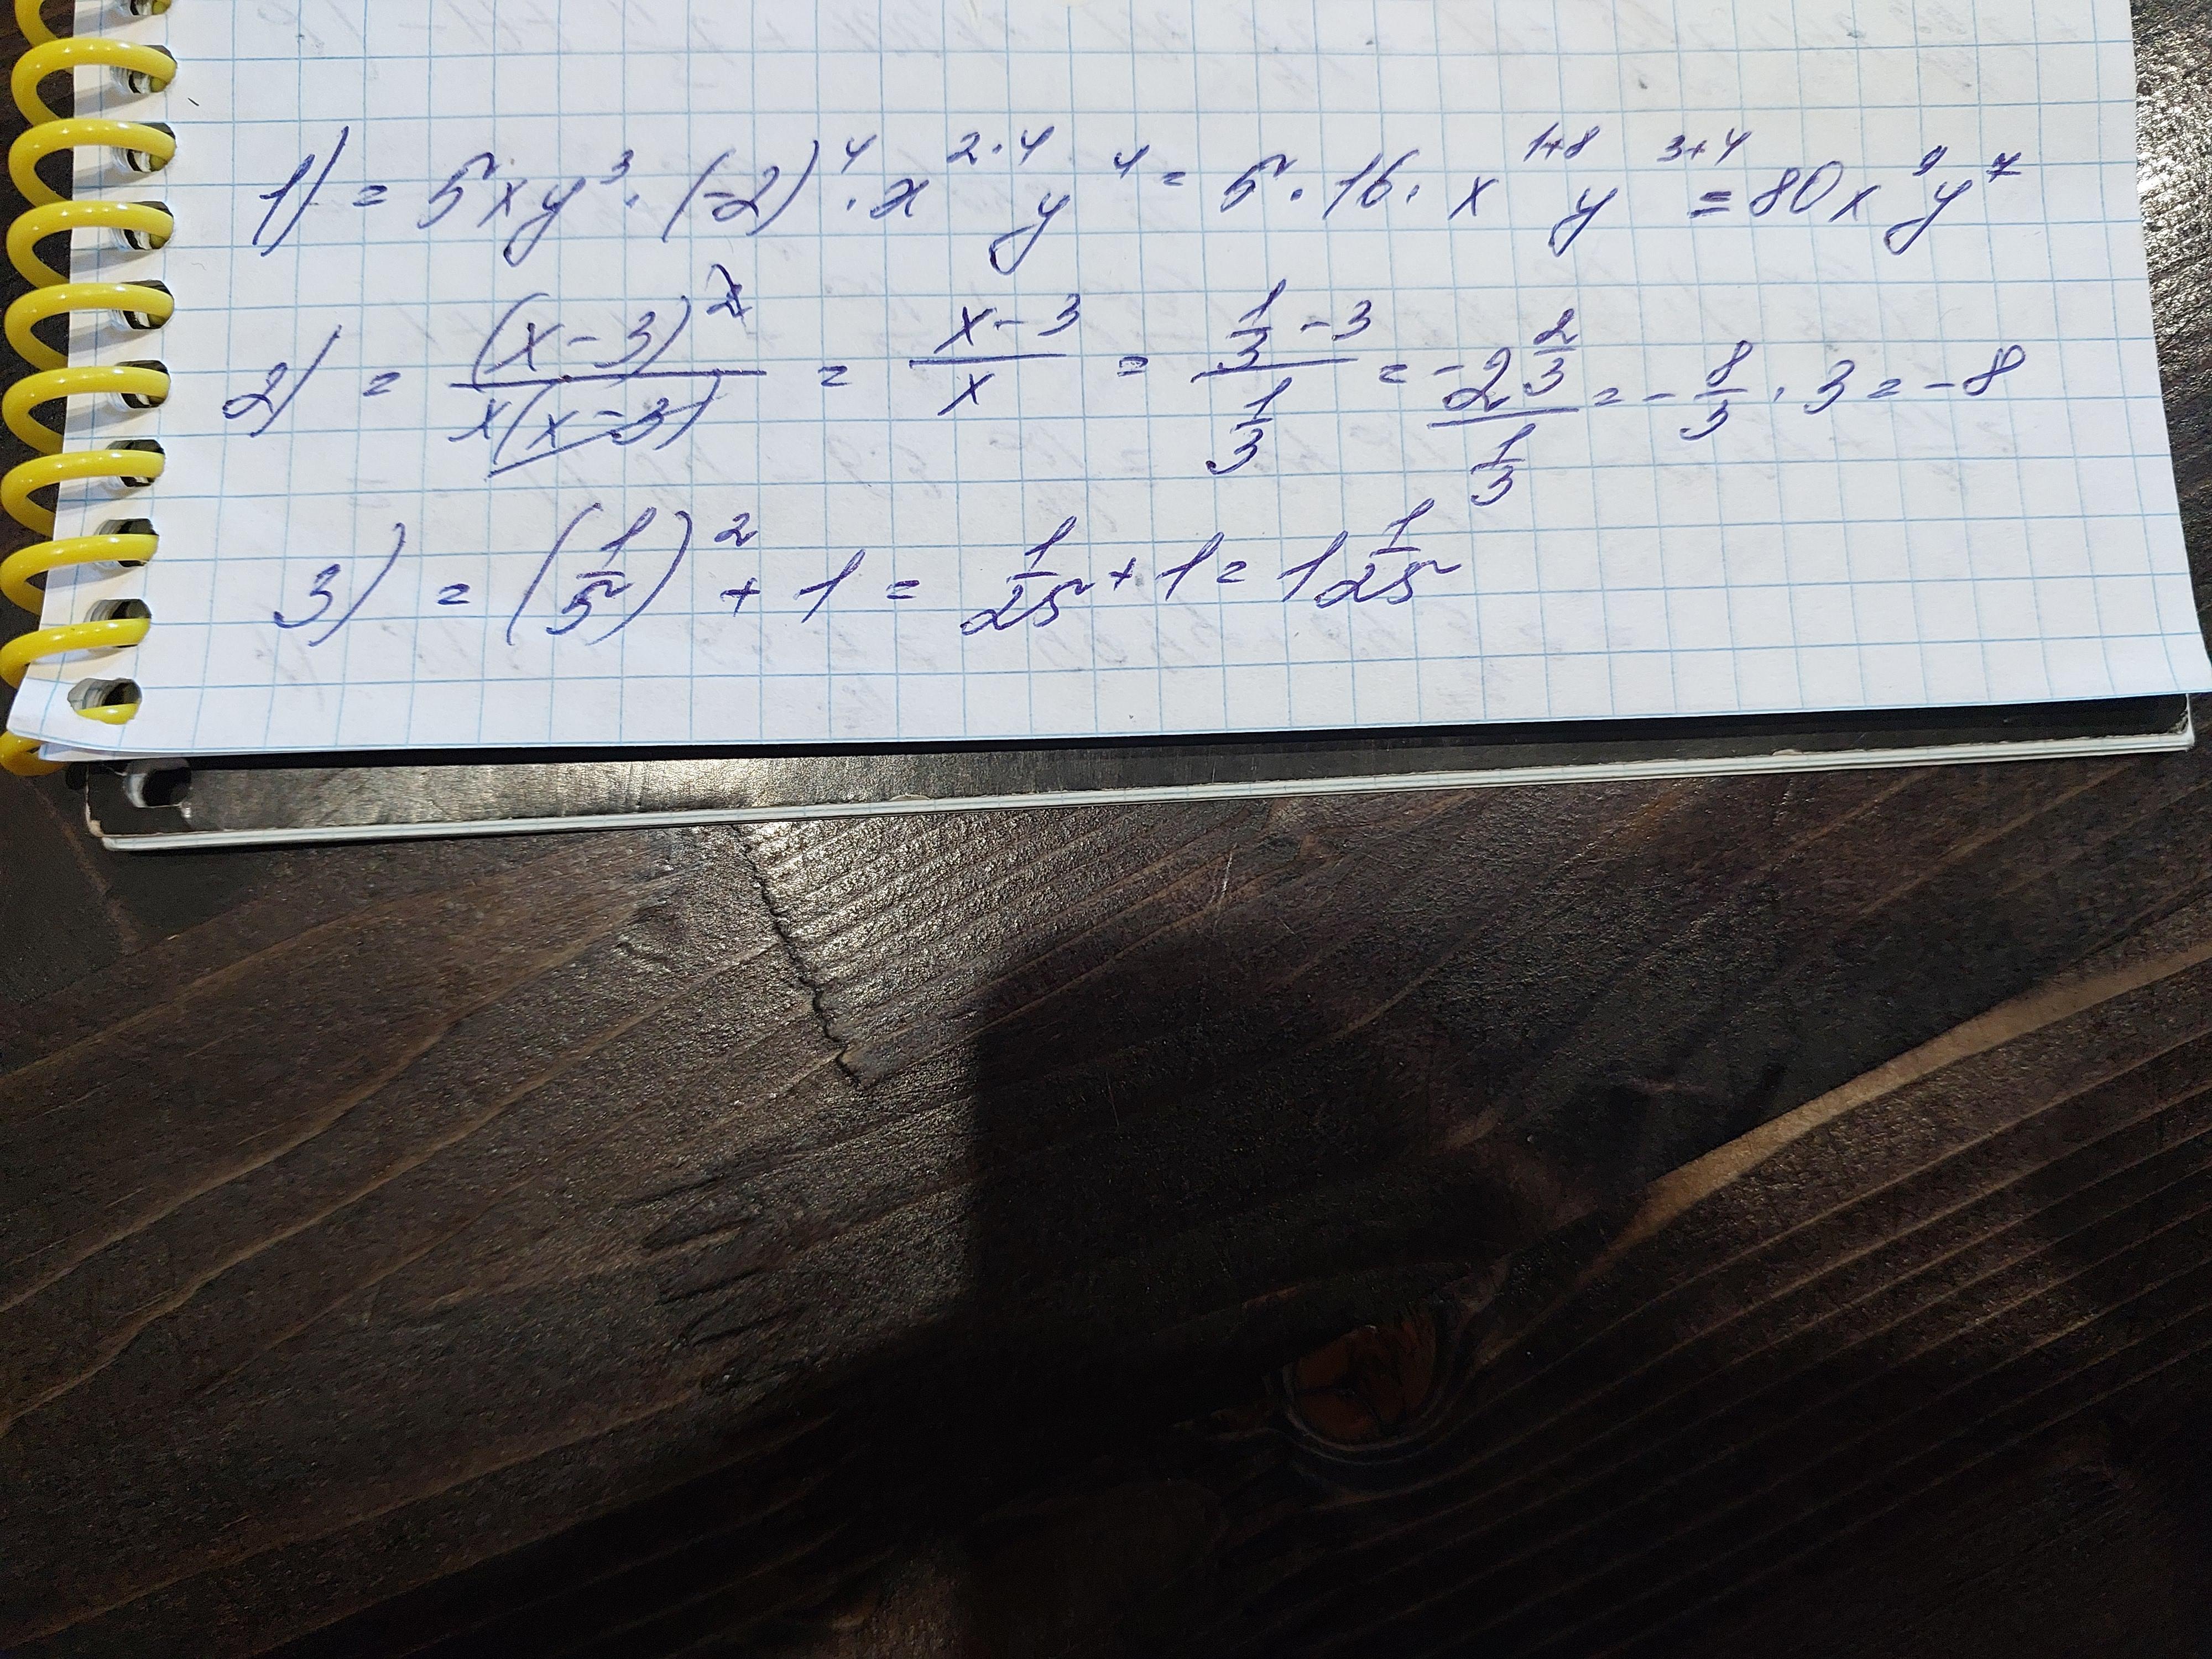 1) = 5xy³ · (-2)⁴ · x²·⁴ y⁴ = 5 · 16 · x¹⁺⁸ y³⁺⁴ = 80x⁹y⁷
2) = (x-3)²/x(x-3) = x-3/x = 1/3-3/1/3 = -2 2/3/1/3 = -8/3 · 3 = -8
3) = (1/5)² + 1 = 1/25 + 1 = 1 1/25